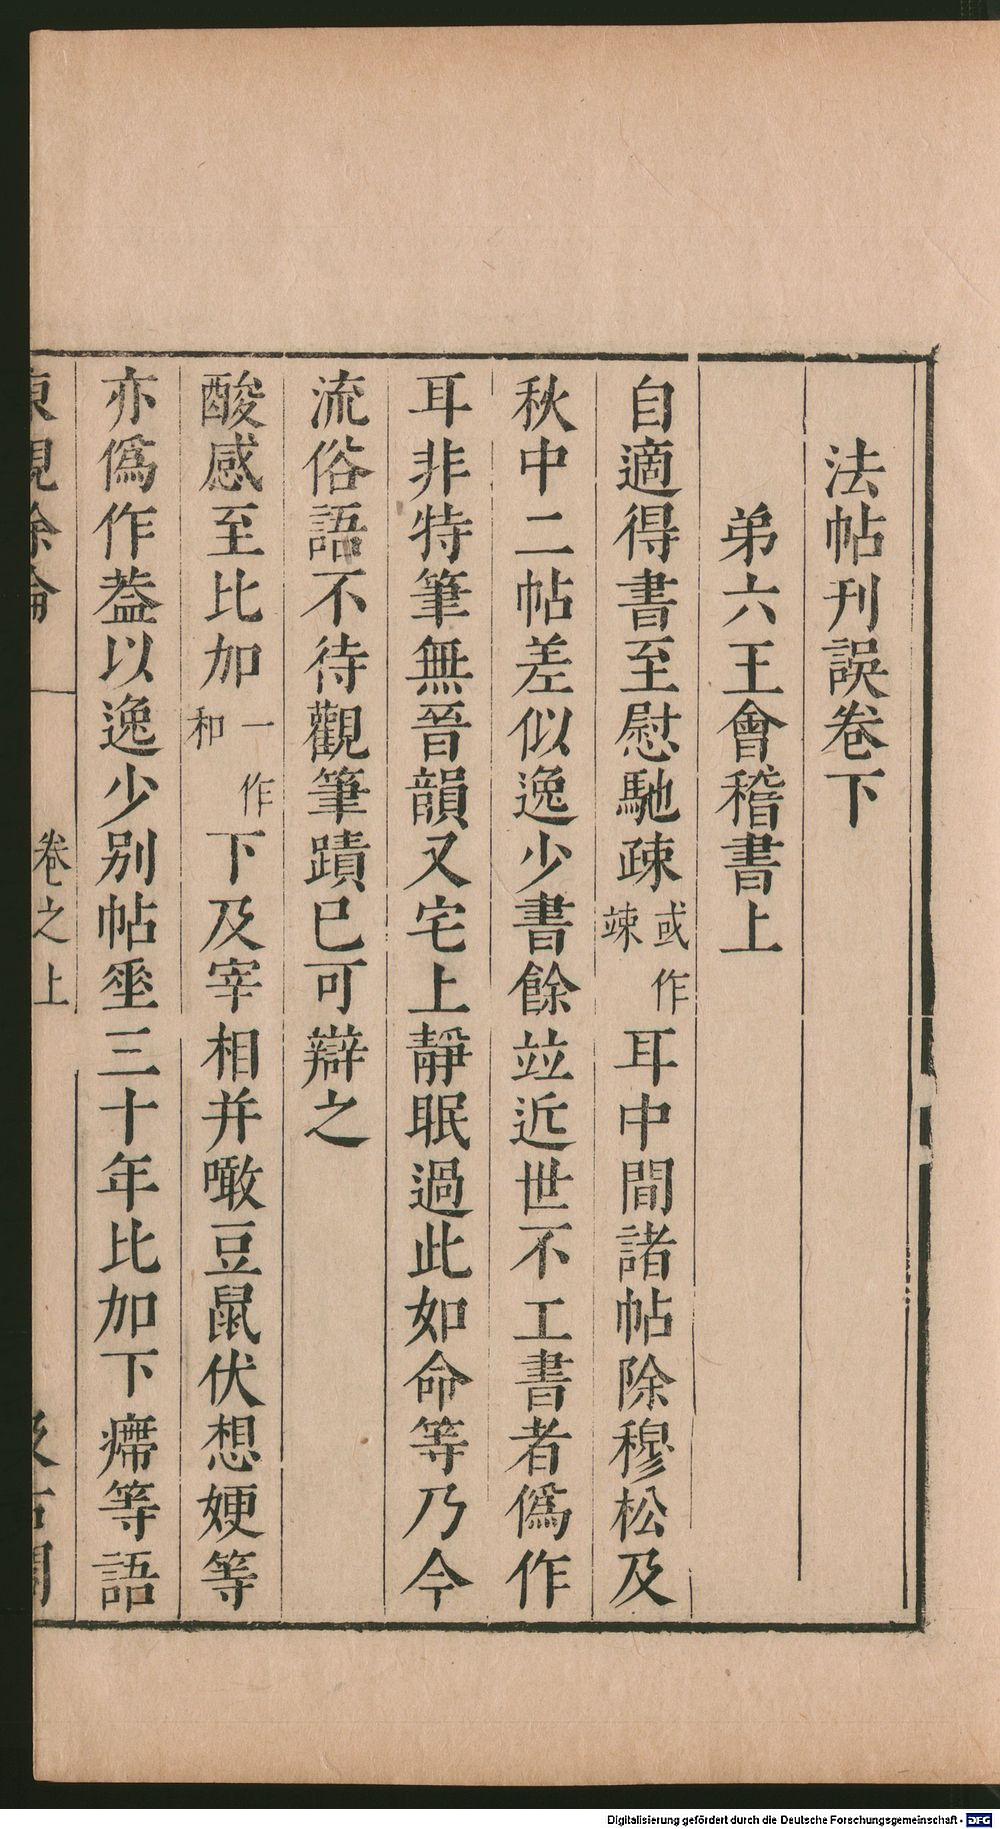 法帖刊誤卷下
弟六王會稽書上
自適得書至慰馳疎或作竦耳中間諸帖除穆松及
秋中二帖差似逸少書餘竝近世不工書者僞作
耳非特筆無晉韻又宅上靜眠過此如命等乃今
流俗語不待觀筆蹟已可辯之
酸感至比加一作和下及宰相并噉豆鼠伏想㛹等
亦僞作葢以逸少別帖埀三十年比加下㿃等語
東觀餘論
卷之上
汲古閣
Digitalisierung gefördert durch die Deutsche Forschungsgemeinschaft - DFG